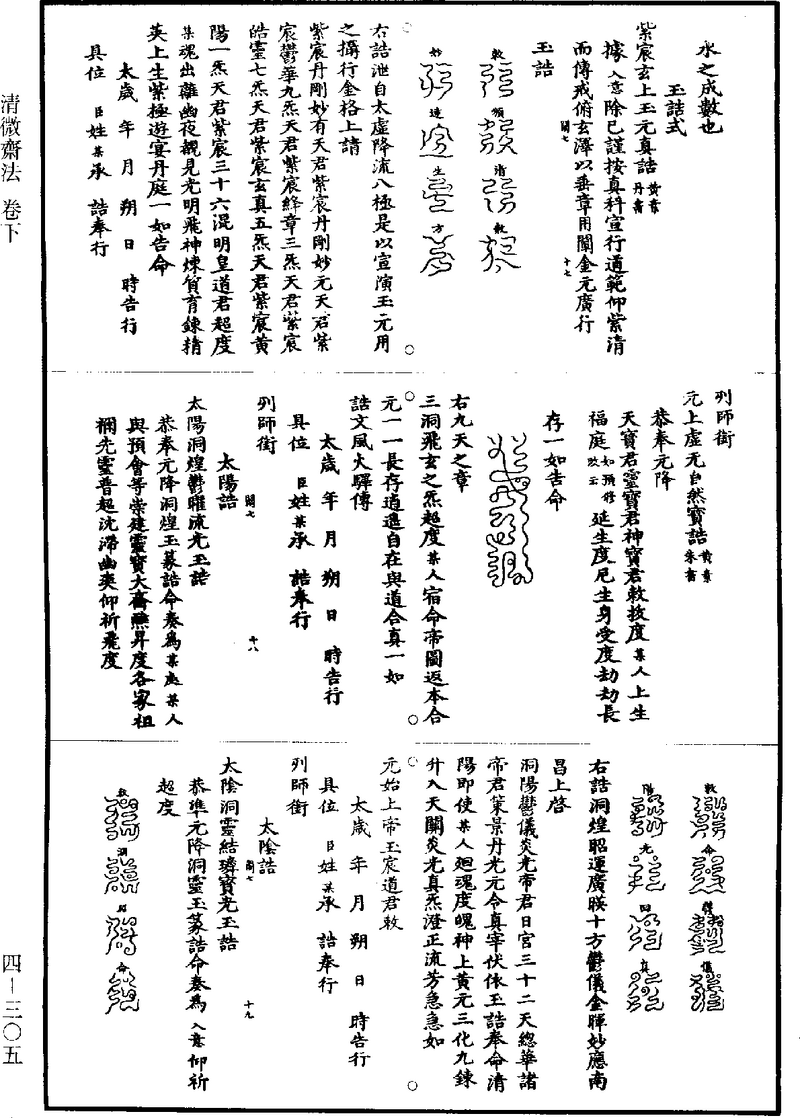 清微齋法 卷下
四－三〇五
水之成數也
玉誥式
紫宸玄上玉元真誥 黃章 丹書
據 入意 除已謹按真科宣行道範仰紫清
而傳戒俯玄澤以垂章用闡金元廣行
闕七 十七
玉誥
敕 領 諸 敕
妙 達 生 方
右誥泄自太虛降流八極是以宣演玉元用
之攝行金格上請
紫宸丹剛妙有天君紫宸丹剛妙元天君紫
宸鬱華九炁天君紫宸絳章三炁天君紫宸
皓靈七炁天君紫宸玄真五炁天君紫宸黃
陽一炁天君紫宸三十六混明皇道君超度
某魂出離幽夜覩見光明飛神煉質育鍊精
英上生紫極遊宴丹庭一如告命
太歲 年 月 朔 日 時告行
具位 臣姓 某 承 誥奉行
列師銜
元上虛无自然寶誥 黃章 朱書
恭奉元降
天寶君靈寶君神寶君敕拔度 某人 上生
福庭 如預修改云 延生度厄生身受度劫劫長
存一如告命
右九天之章
三洞飛玄之炁超度 某人 宿命帝圖返本合
元一一長存逍遥自在與道合真一如
誥文風火驛傳
太歲 年 月 朔 日 時告行
具位 臣姓某 承 誥奉行
列師銜
闕七 十八
太陽誥
太陽洞煌鬱曜流光玉誥
恭奉元降洞煌玉篆誥命奏為 某處 某人
與預會等崇建靈寶大齋燕昇度各家祖
禰先靈普超沈滯幽爽仰祈飛度
敕 命 鬱 儀
陽 光 回 真
右誥洞煌昭運廣映十方鬱儀金暉妙應南
昌上啓
洞陽鬱儀炎光帝君日宮三十二天總華諸
帝君策景丹光元令真宰伏依玉誥奉命清
陽即使 某人 廻魂度魄神上黃元三化九鍊
升入天關炎光真炁澄正流芳急急如
元始上帝玉宸道君敕
太歲 年 月 朔 日 時告行
具位 臣姓某 承 誥奉行
列師銜
太陰誥
闕七 十九
太陰洞靈結璘寶光玉誥
恭準元降洞靈玉篆誥命奏為 入意 仰祈
超度
敕 洞 昭 命